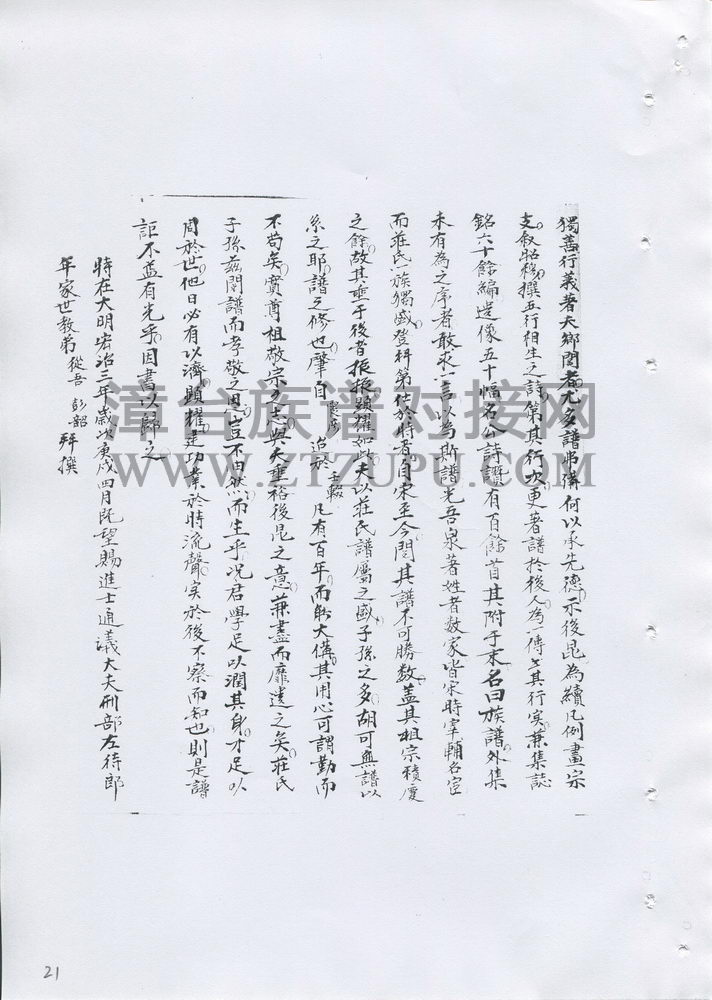 獨善行義著夫鄉閭者尤多譜弗脩何以承先德示後昆為續凡例畫宗
支敘昭穆撰五行相生之詩第其行次更著譜於後人為一傳其行实兼集誌
銘六十餘編遺像五十幅名公詩讚有百餘首其附于末名曰族譜外集
未有為之序者敢求一言以為斯譜光吾泉著姓者数家皆宋時宰輔名宦
而莊氏一族獨盛登科第仕於時者自宋至今閱其譜不可勝数蓋其祖宗積慶
之餘故其垂于後者振振顯耀如此夫以莊氏譜屬之盛子孫之多胡可無譜以
系之耶譜之修也肇自 迨於 凡有百年而能大備其用心可謂勤而
不苟矣實尊祖敬宗之志與夫垂裕後昆之意兼盡而靡遺之矣莊氏
子孫茲閱譜而孝敬之思豈不由然而生乎况君學足以潤其身才足以
周於世他日必有以濟顯耀建功業於時流聲实於後不察而知也則是譜
詎不益有光乎因書以歸之
時在大明宏治三年歲次庚戌四月既望賜進士通議大夫刑部左侍郎
年家世教弟從吾彭韶拜撰
漳台族谱对接网
WWW.ZTZUPU.COM
21